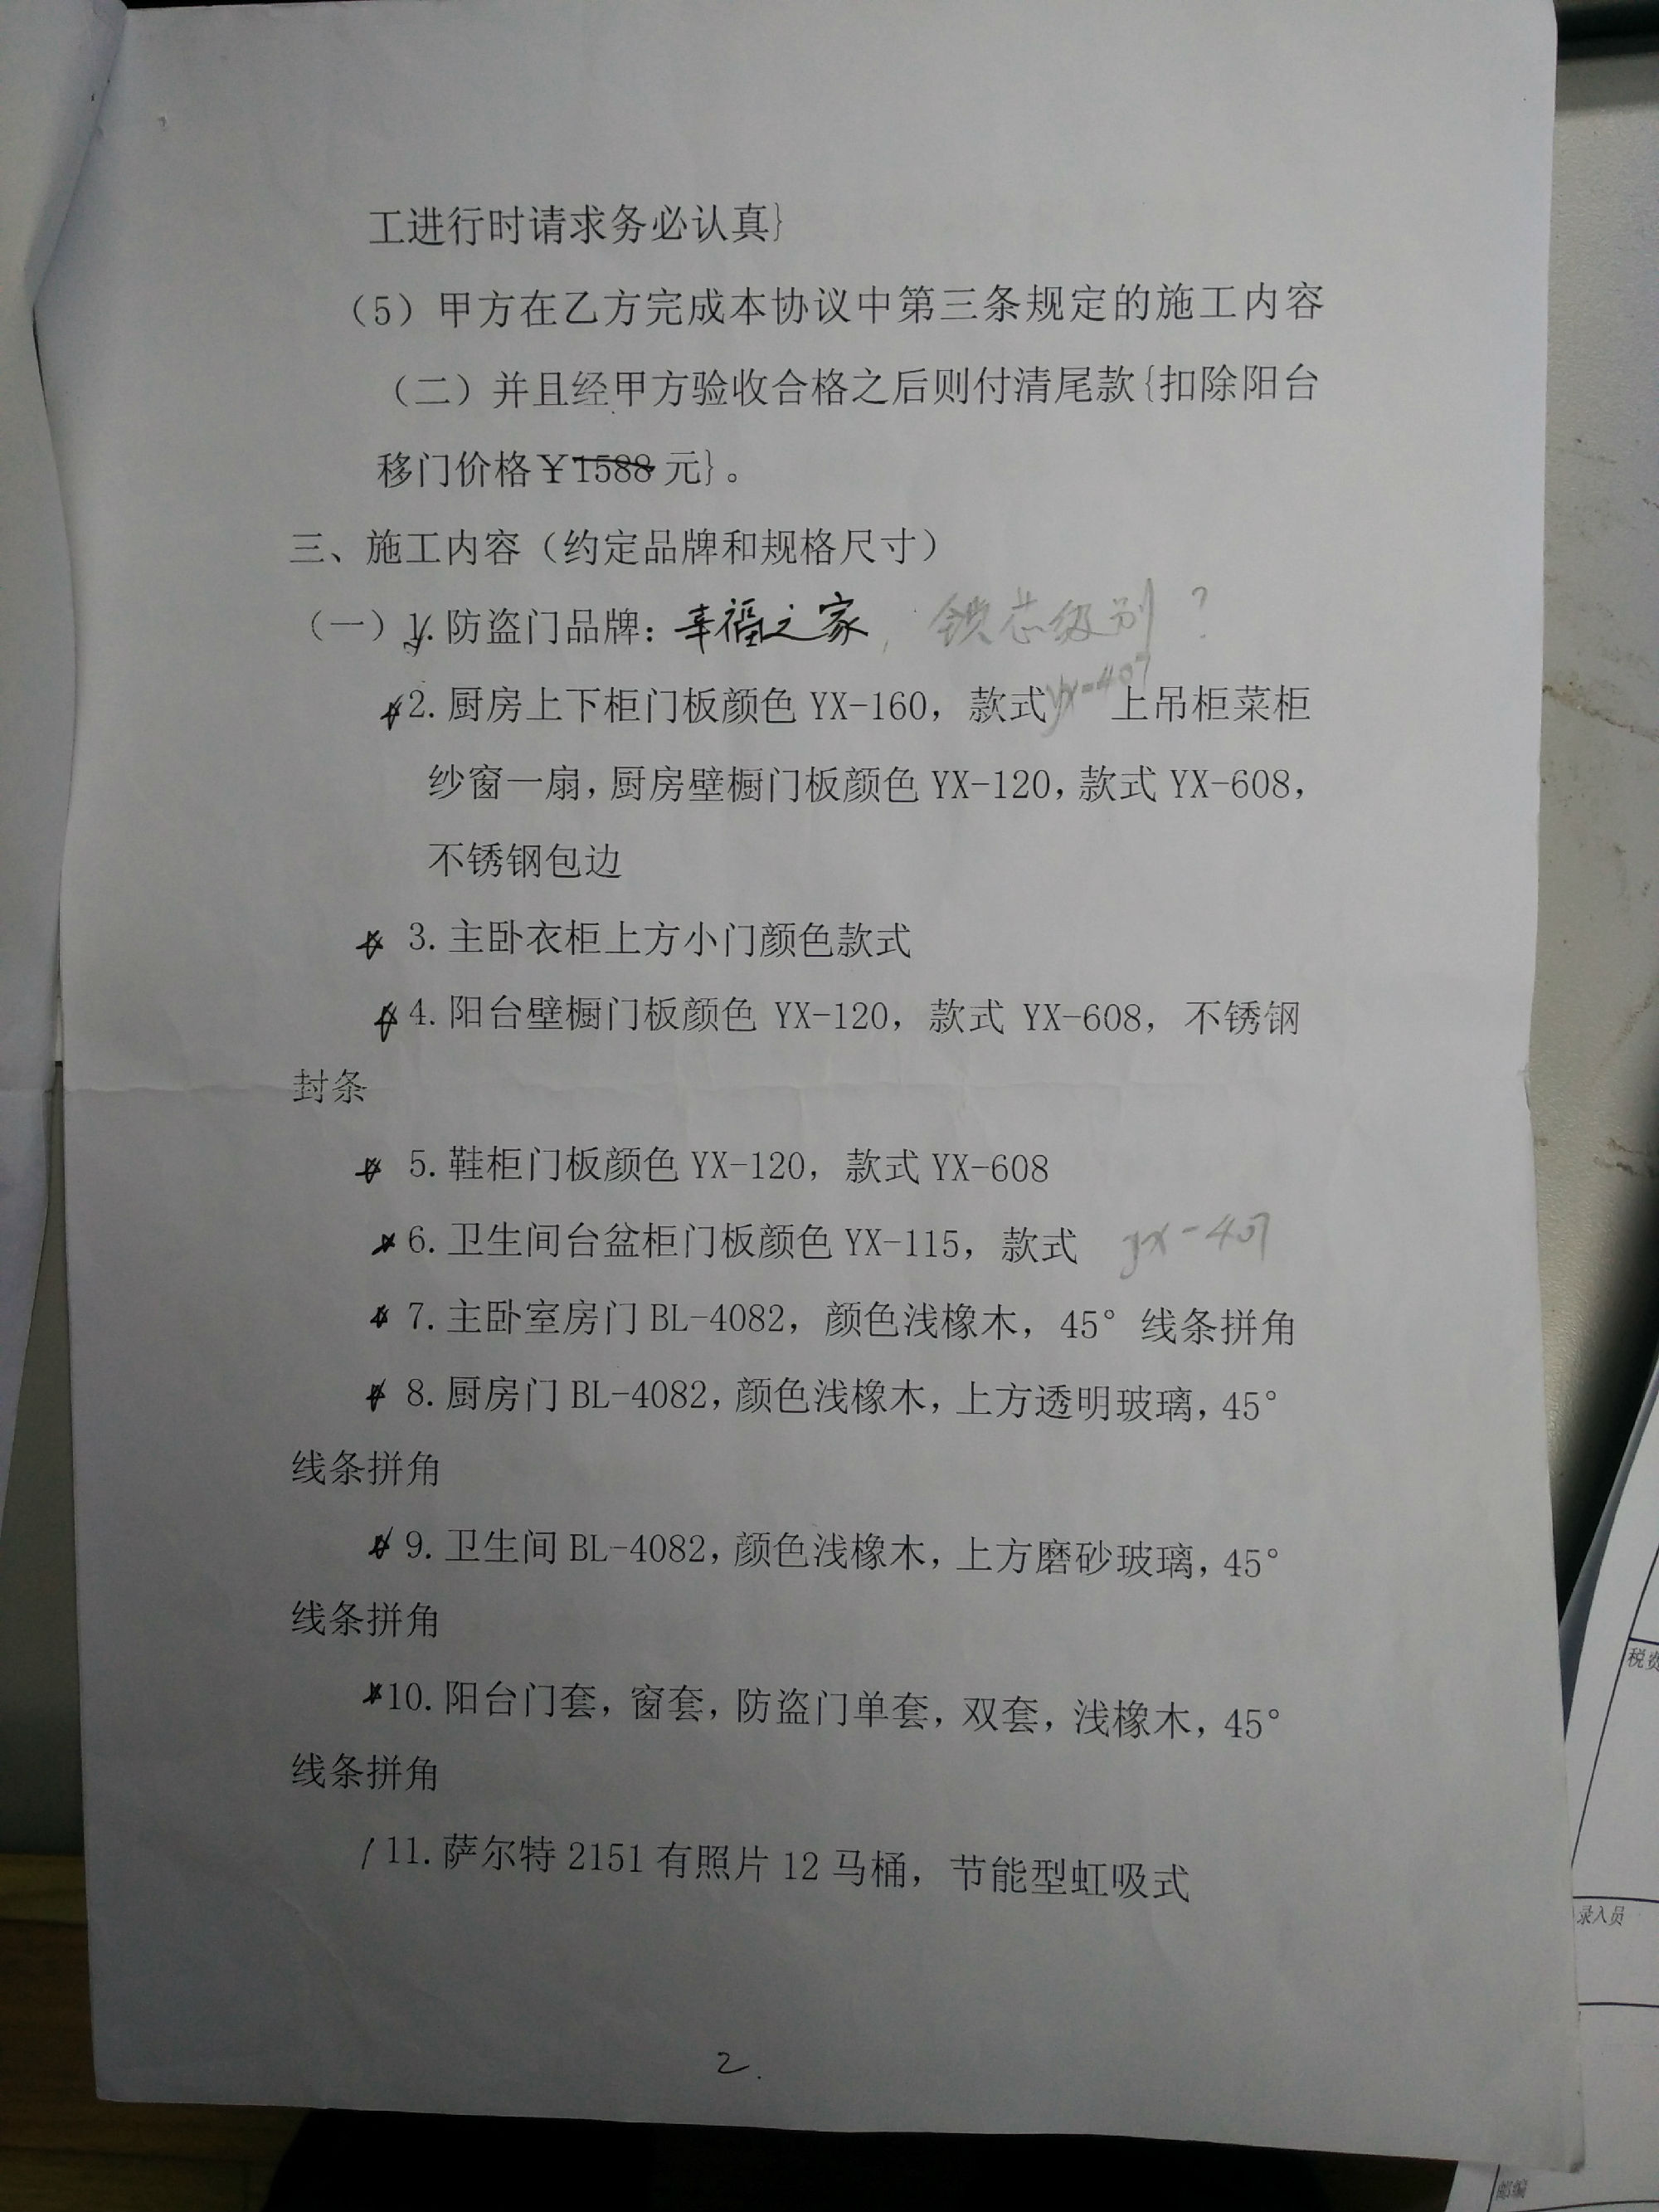 工进行时请求务必认真}
（5）甲方在乙方完成本协议中第三条规定的施工内容
（二）并且经甲方验收合格之后则付清尾款{扣除阳台
移门价格￥1588元}。
三、施工内容（约定品牌和规格尺寸）
（一）1.防盗门品牌：幸福之家，锁芯级别？
2.厨房上下柜门板颜色YX-160，款式yx-407上吊柜菜柜
纱窗一扇，厨房壁橱门板颜色YX-120，款式YX-608，
不锈钢包边
3.主卧衣柜上方小门颜色款式
4.阳台壁橱门板颜色 YX-120，款式 YX-608，不锈钢
封条
5.鞋柜门板颜色YX-120，款式YX-608
6.卫生间台盆柜门板颜色YX-115，款式 yx-407
7.主卧室房门BL-4082，颜色浅橡木，45°线条拼角
8.厨房门BL-4082，颜色浅橡木，上方透明玻璃，45°
线条拼角
9.卫生间BL-4082，颜色浅橡木，上方磨砂玻璃，45°
线条拼角
10.阳台门套，窗套，防盗门单套，双套，浅橡木，45°
线条拼角
11.萨尔特2151有照片12马桶，节能型虹吸式
2.
税费
录入员
邮编